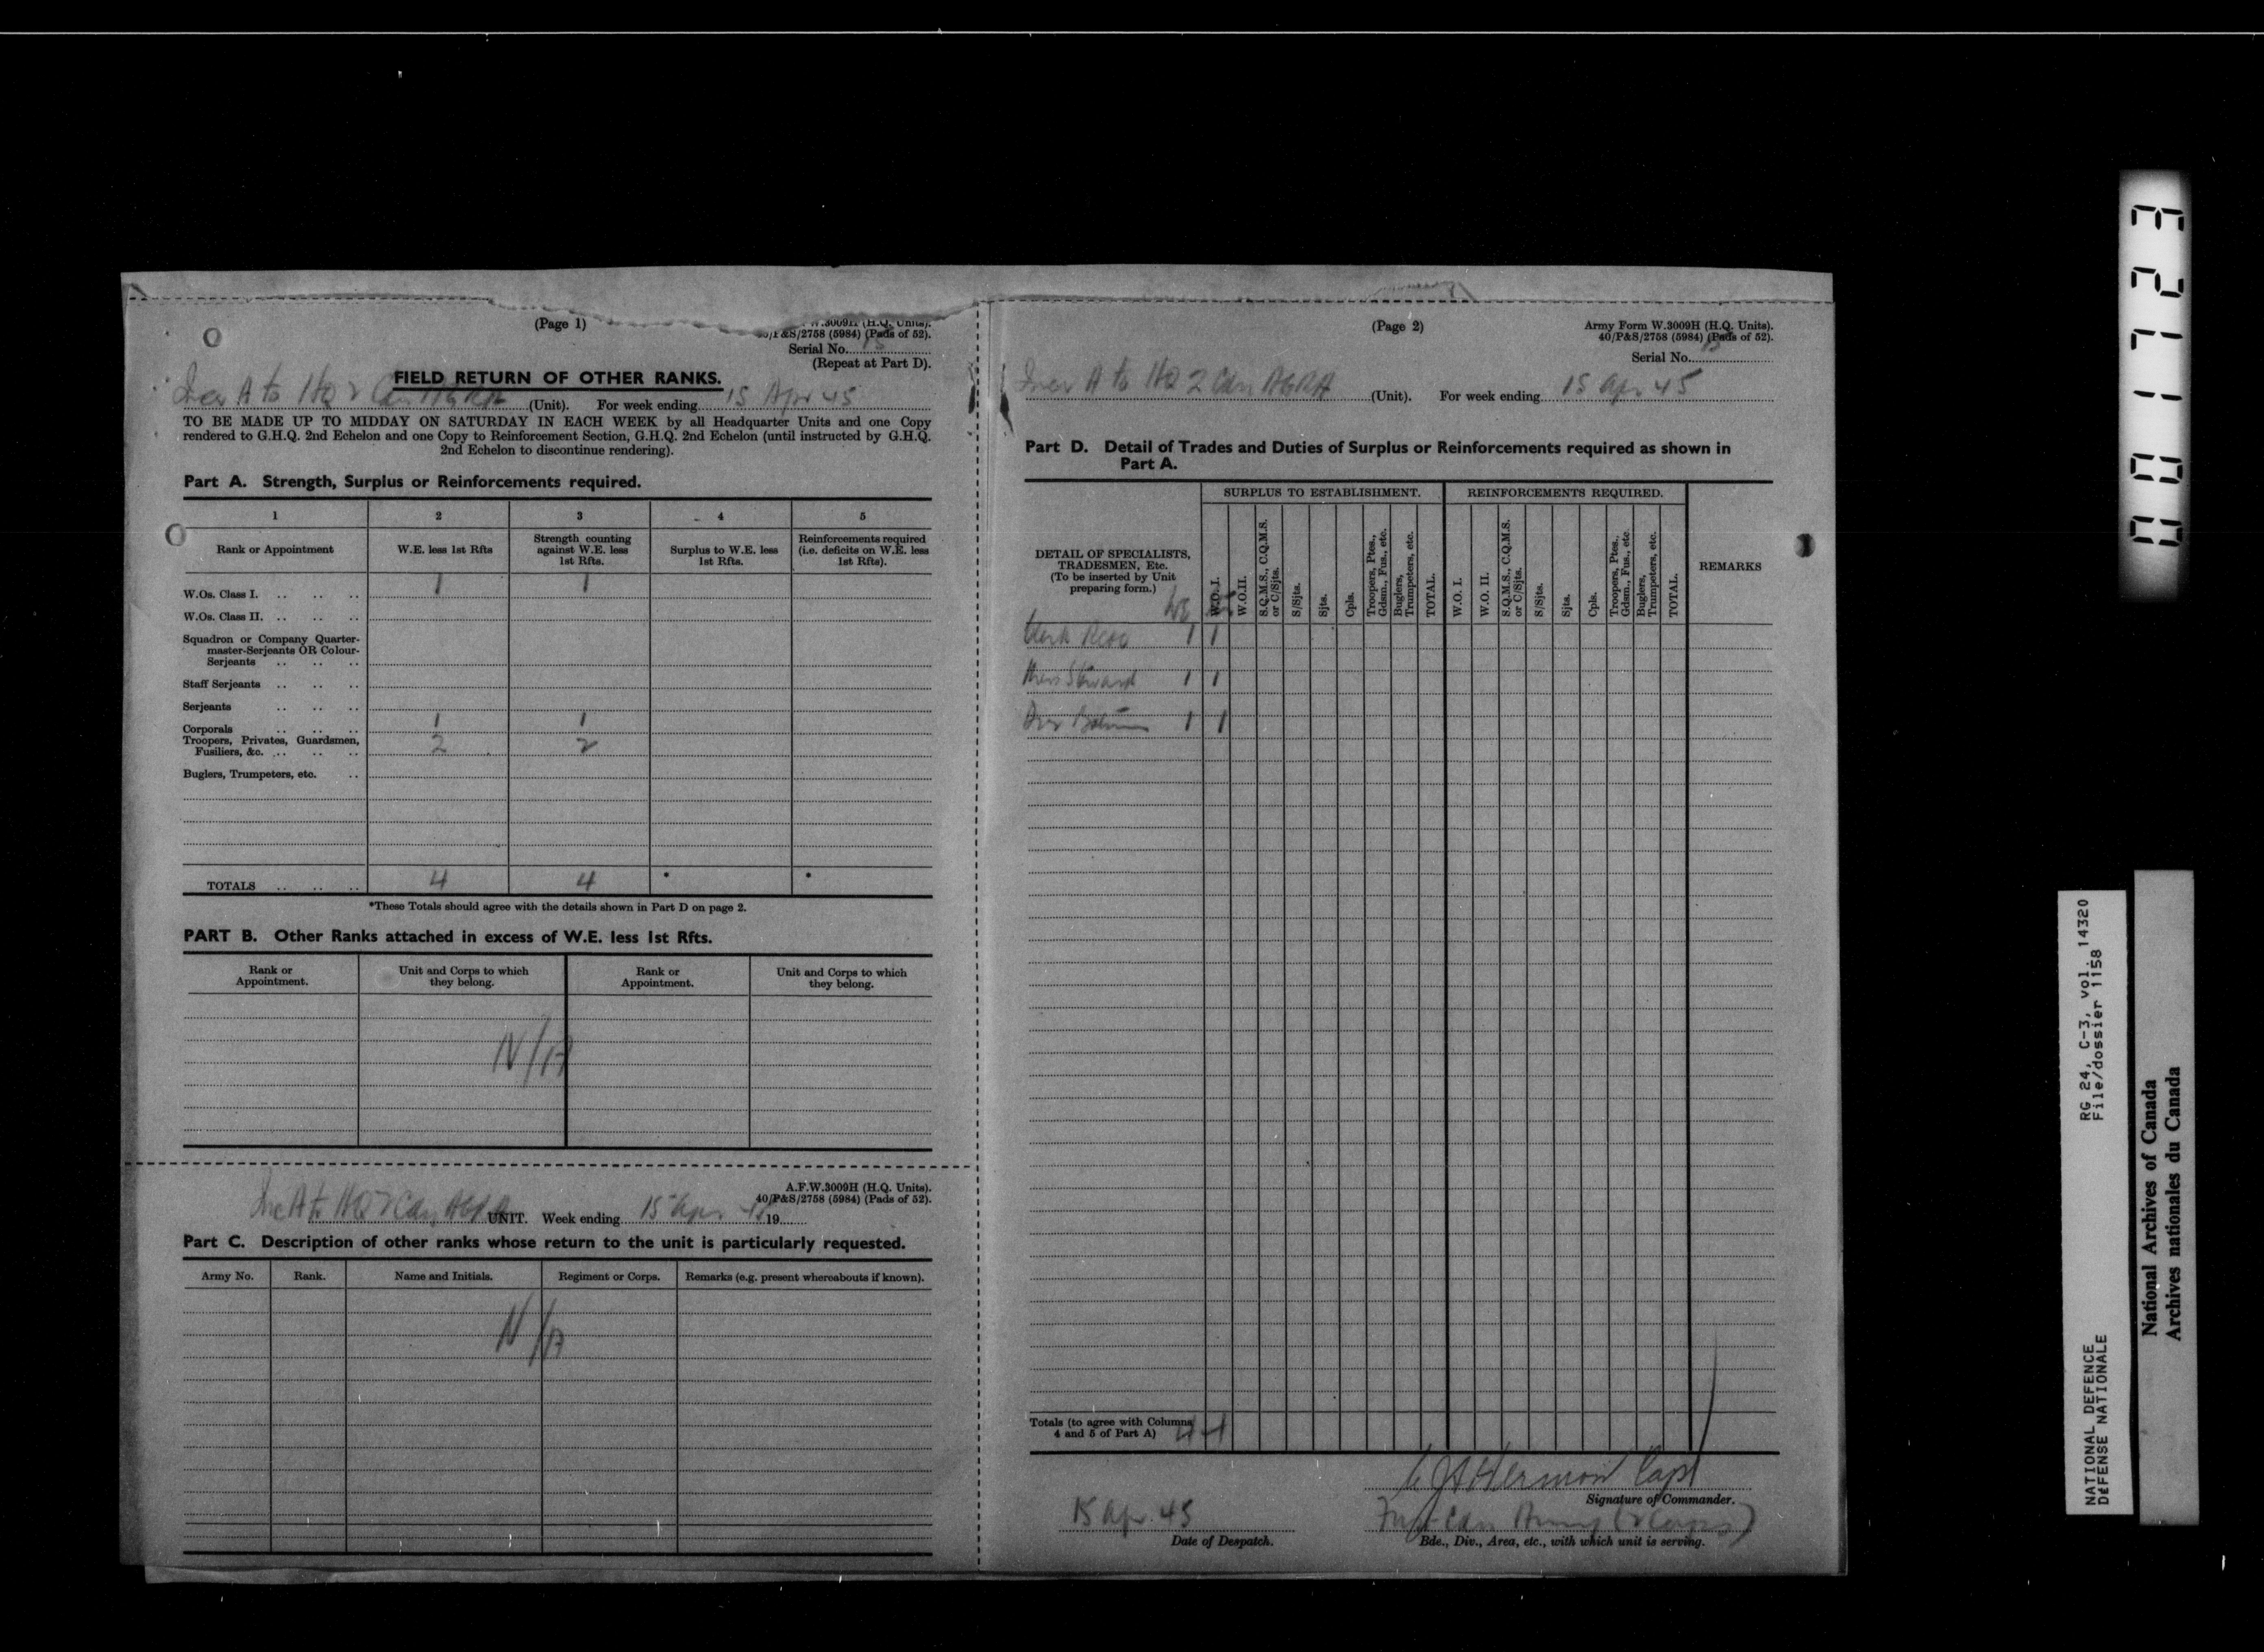 (Page 1)
W.3009H (H.Q. Units).
40/P&S/2758 (5984) (Pads of 52).
Serial No. 15
(Repeat at Part D).
FIELD RETURN OF OTHER RANKS.
Incr A to HQ 2 Cdn AGRA (Unit). For week ending 15 Apr 45
TO BE MADE UP TO MIDDAY ON SATURDAY IN EACH WEEK by all Headquarter Units and one Copy
rendered to G.H.Q. 2nd Echelon and one Copy to Reinforcement Section, G.H.Q. 2nd Echelon (until instructed by G.H.Q.
2nd Echelon to discontinue rendering).
Part A. Strength, Surplus or Reinforcements required.
1 2 3 4 5
Rank or Appointment
W.E. less 1st Rfts
Strength counting
against W.E. less
1st Rfts.
Surplus to W.E. less
1st Rfts.
Reinforcements required
(i.e. deficits on W.E. less
1st Rfts).
W.Os. Class I. .. .. .. 1 1
W.Os. Class II. .. .. ..
Squadron or Company Quarter-
master-Serjeants OR Colour-
Serjeants .. .. ..
Staff Serjeants .. .. ..
Serjeants .. .. ..
Corporals .. .. .. 1 1
Troopers, Privates, Guardsmen,
Fusiliers, &c. .. .. .. 2 2
Buglers, Trumpeters, etc. ..
TOTALS .. .. .. 4 4 * *
*These Totals should agree with the details shown in Part D on page 2.
PART B. Other Ranks attached in excess of W.E. less 1st Rfts.
Rank or
Appointment.
Unit and Corps to which
they belong.
Rank or
Appointment.
Unit and Corps to which
they belong.
N/A
A.F.W.3009H (H.Q. Units).
40/P&S/2758 (5984) (Pads of 52).
Inc A to HQ 2 Cdn AGRA UNIT. Week ending 15 Apr 45 19
Part C. Description of other ranks whose return to the unit is particularly requested.
Army No. Rank. Name and Initials. Regiment or Corps. Remarks (e.g. present whereabouts if known).
N/A
(Page 2)
Army Form W.3009H (H.Q. Units).
40/P&S/2758 (5984) (Pads of 52).
Serial No. 15
Incr A to HQ 2 Cdn AGRA (Unit). For week ending 15 Apr 45
Part D. Detail of Trades and Duties of Surplus or Reinforcements required as shown in
Part A.
DETAIL OF SPECIALISTS,
TRADESMEN, Etc.
(To be inserted by Unit
preparing form.)
SURPLUS TO ESTABLISHMENT.
W.O. I.
W.O.II.
S.Q.M.S., C.Q.M.S.
or C/Sjts.
S/Sjts.
Sjts.
Cpls.
Troopers, Ptes.,
Gdsm., Fus., etc.
Buglers,
Trumpeters, etc.
TOTAL.
REINFORCEMENTS REQUIRED.
W.O. I.
W.O. II.
S.Q.M.S., C.Q.M.S.
or C/Sjts.
S/Sjts.
Sjts.
Cpls.
Troopers, Ptes.,
Gdsm., Fus., etc.
Buglers,
Trumpeters, etc.
TOTAL.
REMARKS
WE
Clerk 1 1
Mess Steward 1 1
1 1
Totals (to agree with Columns
4 and 5 of Part A) 4 4
Hermon Capt
Signature of Commander.
15 Apr. 45
Date of Despatch.
First Cdn Army (2 Corps)
Bde., Div., Area, etc., with which unit is serving.
001723
RG 24, C-3, vol. 14320
File/dossier 1158
NATIONAL DEFENCE
DÉFENSE NATIONALE
National Archives of Canada
Archives nationales du Canada